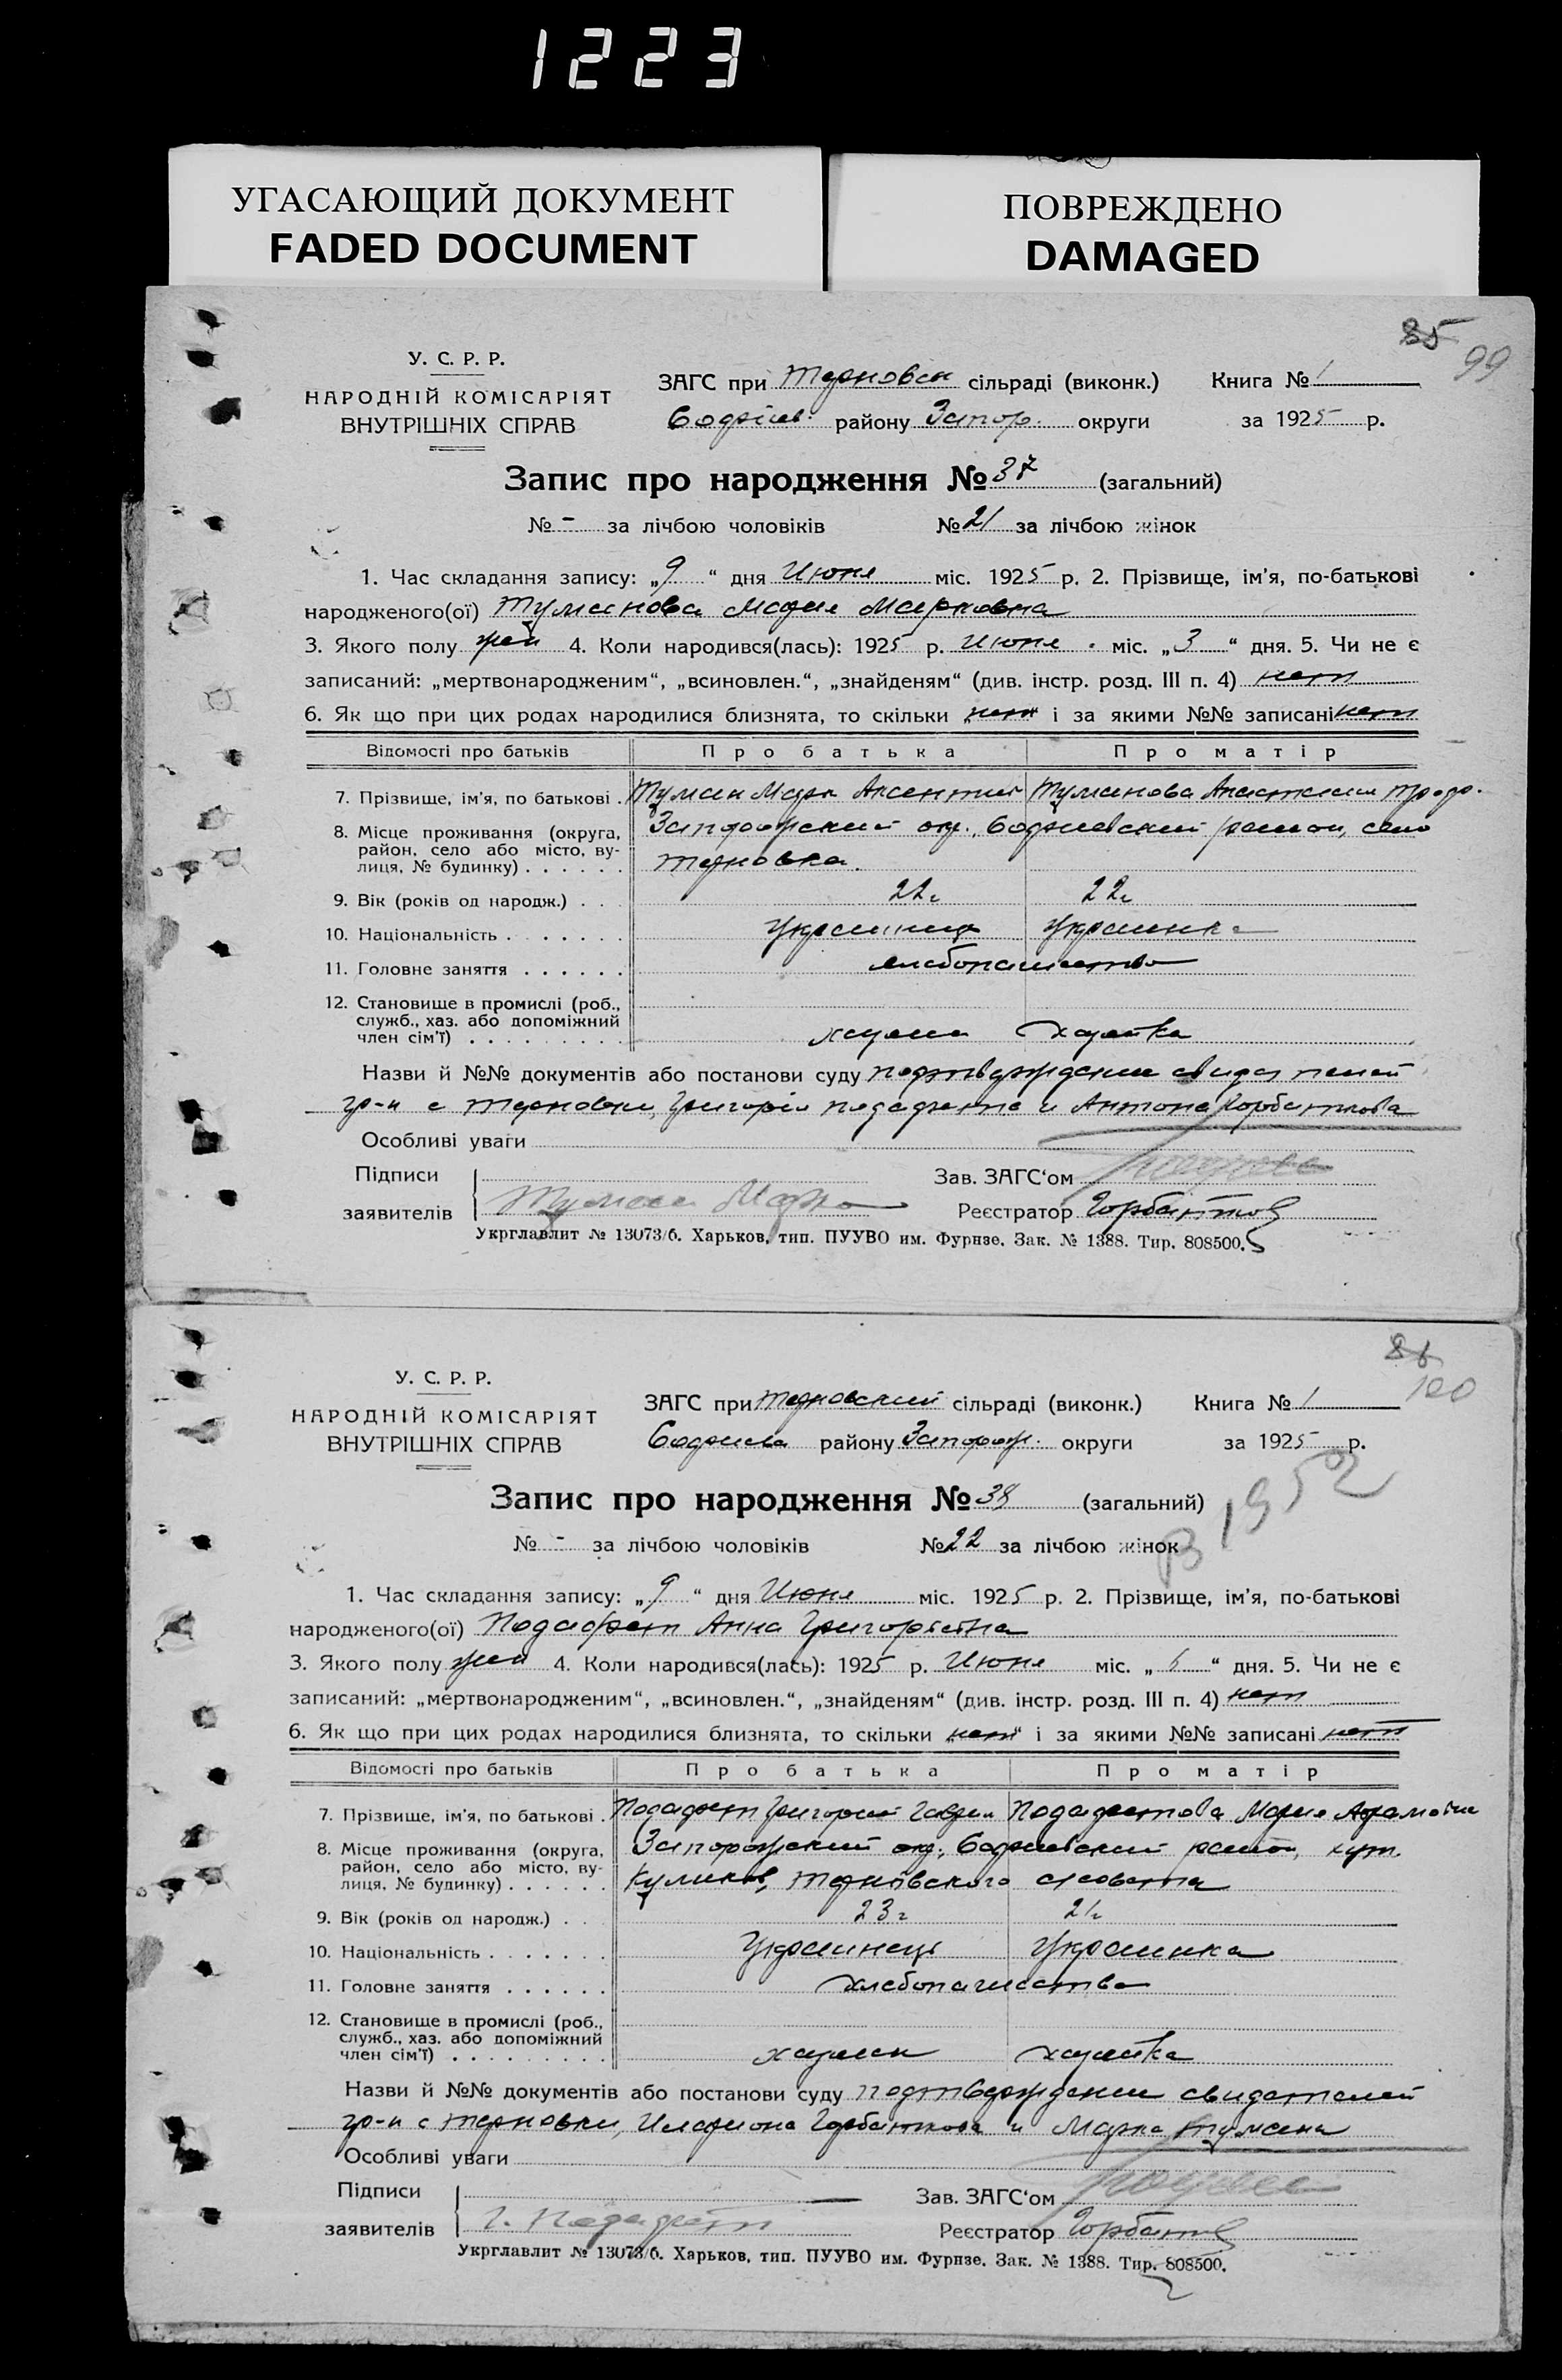 1223
УГАСАЮЩИЙ ДОКУМЕНТ
FADED DOCUMENT
ПОВРЕЖДЕНО
DAMAGED
85
99
У. С. Р. Р.
НАРОДНІЙ КОМІСАРІЯТ
ВНУТРІШНІХ СПРАВ
ЗАГС при Терновск сільраді (виконк.) Книга № 1
району Запор. округи за 1925 р.
Запис про народження № 37 (загальний)
№ - за лічбою чоловіків № 21 за лічбою жінок
1. Час складання запису: „9“ дня Июня міс. 1925 р. 2. Прізвище, ім’я, по-батькові
народженого(ої) Туманова Мария Марковна
3. Якого полу жен 4. Коли народився(лась): 1925 р. Июня міс. „3“ дня. 5. Чи не є
записаний: „мертвонародженим“, „всиновлен.“, „знайденям“ (див. інстр. розд. III п. 4) нет
6. Як що при цих родах народилися близнята, то скільки нет і за якими №№ записані нет
Відомості про батьків Про батька Про матір
7. Прізвище, ім’я, по батькові . Туман Марк Аксентиев Туманова Анастасия
8. Місце проживання (округа, Запорожский окр., район, село
район, село або місто, ву-
лиця, № будинку) . . . . . . Терновка.
9. Вік (років од народж.) . . . 22г 22г
10. Національність . . . . . . . Украинец Украинка
11. Головне заняття . . . . . . хлебопашество
12. Становище в промислі (роб.,
служб., хаз. або допоміжний
член сім’ї) . . . . . . . . . хозяин хозяйка
Назви й №№ документів або постанови суду подтверждении свидетелей
гр-н с Терновки, Григория Подафета и Антона Горбаткова
Особливі уваги
Підписи
заявителів Туман Марко
Зав. ЗАГС‘ом
Реєстратор Горбатков
Укрглавлит № 13073/6. Харьков, тип. ПУУВО им. Фрунзе. Зак. № 1388. Тир. 808500.
86
100
У. С. Р. Р.
НАРОДНІЙ КОМІСАРІЯТ
ВНУТРІШНІХ СПРАВ
ЗАГС при Терновский сільраді (виконк.) Книга № 1
району Запорож. округи за 1925 р.
В 1952
Запис про народження № 38 (загальний)
№ - за лічбою чоловіків № 22 за лічбою жінок
1. Час складання запису: „9“ дня Июня міс. 1925 р. 2. Прізвище, ім’я, по-батькові
народженого(ої) Подафет Анна Григорьевна
3. Якого полу жен 4. Коли народився(лась): 1925 р. Июня міс. „ “ дня. 5. Чи не є
записаний: „мертвонародженим“, „всиновлен.“, „знайденям“ (див. інстр. розд. III п. 4) нет
6. Як що при цих родах народилися близнята, то скільки „нет“ і за якими №№ записані нет
Відомості про батьків Про батька Про матір
7. Прізвище, ім’я, по батькові . Подафет Григорий Гаврил Подафетова Мария Абрамовна
8. Місце проживання (округа, Запорожский окр., район, хут.
район, село або місто, ву-
лиця, № будинку) . . . . . . Куликов, Терновского с/совета
9. Вік (років од народж.) . . . 23г 21г
10. Національність . . . . . . . Украинець Украинка
11. Головне заняття . . . . . . хлебопашества
12. Становище в промислі (роб.,
служб., хаз. або допоміжний
член сім’ї) . . . . . . . . . хозяин хозяйка
Назви й №№ документів або постанови суду подтверждении свидетелей
гр-н с Терновки, Илариона Горбаткова и Марка Тумана
Особливі уваги
Підписи
заявителів Г. Подафет
Зав. ЗАГС‘ом
Реєстратор Горбатков
Укрглавлит № 13073/6. Харьков, тип. ПУУВО им. Фрунзе. Зак. № 1388. Тир. 808500.